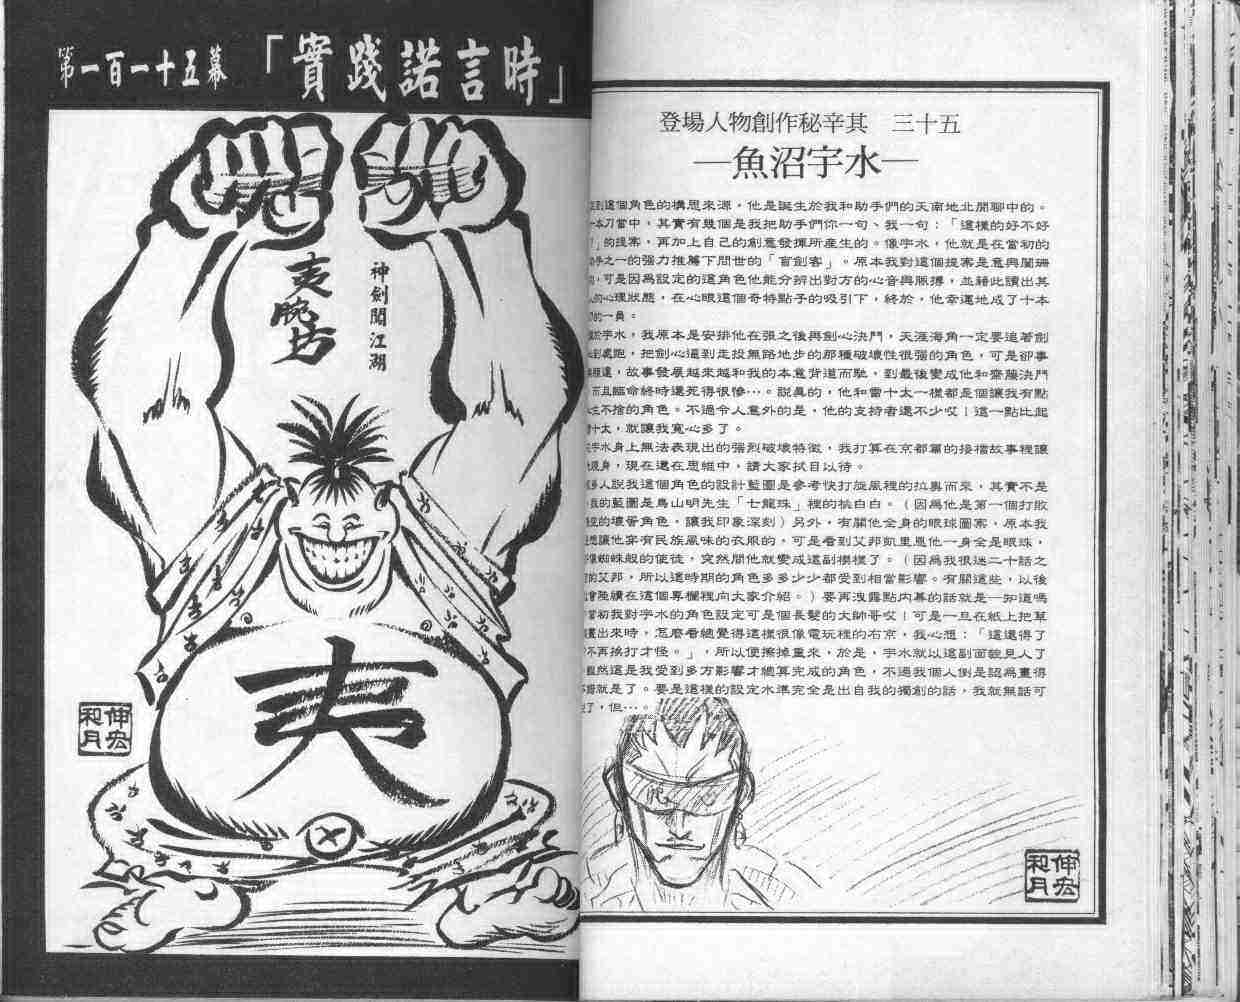 第一百一十五幕「實踐諾言時」
神劍聞江湖
夷腕坊
夷
伸宏
和月
登場人物創作秘辛其 三十五
—魚沼宇水—
到這個角色的構思來源，他是誕生於我和助手們的天南地北閒聊中的。
本刀當中，其實有幾個是我把助手們你一句、我一句：「這樣的好不好
」的提案，再加上自己的創意發揮所產生的。像宇水，他就是在當初的
手之一的強力推薦下問世的「盲劍客」。原本我對這個提案是意興闌珊
，可是因為設定的這角色他能分辨出對方的心音與脈搏，並藉此讀出其
的心理狀態，在心眼這個奇特點子的吸引下，終於，他幸運地成了十本
的一員。
於宇水，我原本是安排他在張之後與劍心決鬥，天涯海角一定要追著劍
到處跑，把劍心逼到走投無路地步的那種破壞性很強的角色，可是卻事
違，故事發展越來越和我的本意背道而馳，到最後變成他和齋藤決鬥
而且臨命終時還死得很慘⋯。說真的，他和雷十太一樣都是個讓我有點
不捨的角色。不過令人意外的是，他的支持者還不少哎！這一點比起
十太，就讓我寬心多了。
宇水身上無法表現出的強烈破壞特徵，我打算在京都篇的接檔故事裡讓
現身，現在還在思維中，請大家拭目以待。
多人說我這個角色的設計藍圖是參考快打旋風裡的拉奧而來，其實不是
我的藍圖是鳥山明先生「七龍珠」裡的桃白白。（因為他是第一個打敗
的壞胥角色，讓我印象深刻）另外，有關他全身的眼球圖案，原本我
想讓他穿有民族風味的衣服的，可是看到艾邦凱里恩他一身全是眼珠，
像蜘蛛般的使徒，突然間他就變成這副模樣了。（因為我很迷二十話之
的艾邦，所以這時期的角色多多少少都受到相當影響。有關這些，以後
會陸續在這個專欄裡向大家介紹。）要再洩露點內幕的話就是—知道嗎
當初我對宇水的角色設定可是個長髮的大帥哥哎！可是一旦在紙上把草
畫出來時，怎麼看總覺得這樣很像電玩裡的右京，我心想：「這還得了
不再挨打才怪。」，所以便擦掉重來，於是，宇水就以這副面貌見人了
雖然這是我受到多方影響才總算完成的角色，不過我個人倒是認為畫得
錯就是了。要是這樣的設定水準完全是出自我的獨創的話，我就無話可
了，但⋯。
心眼
伸宏
和月